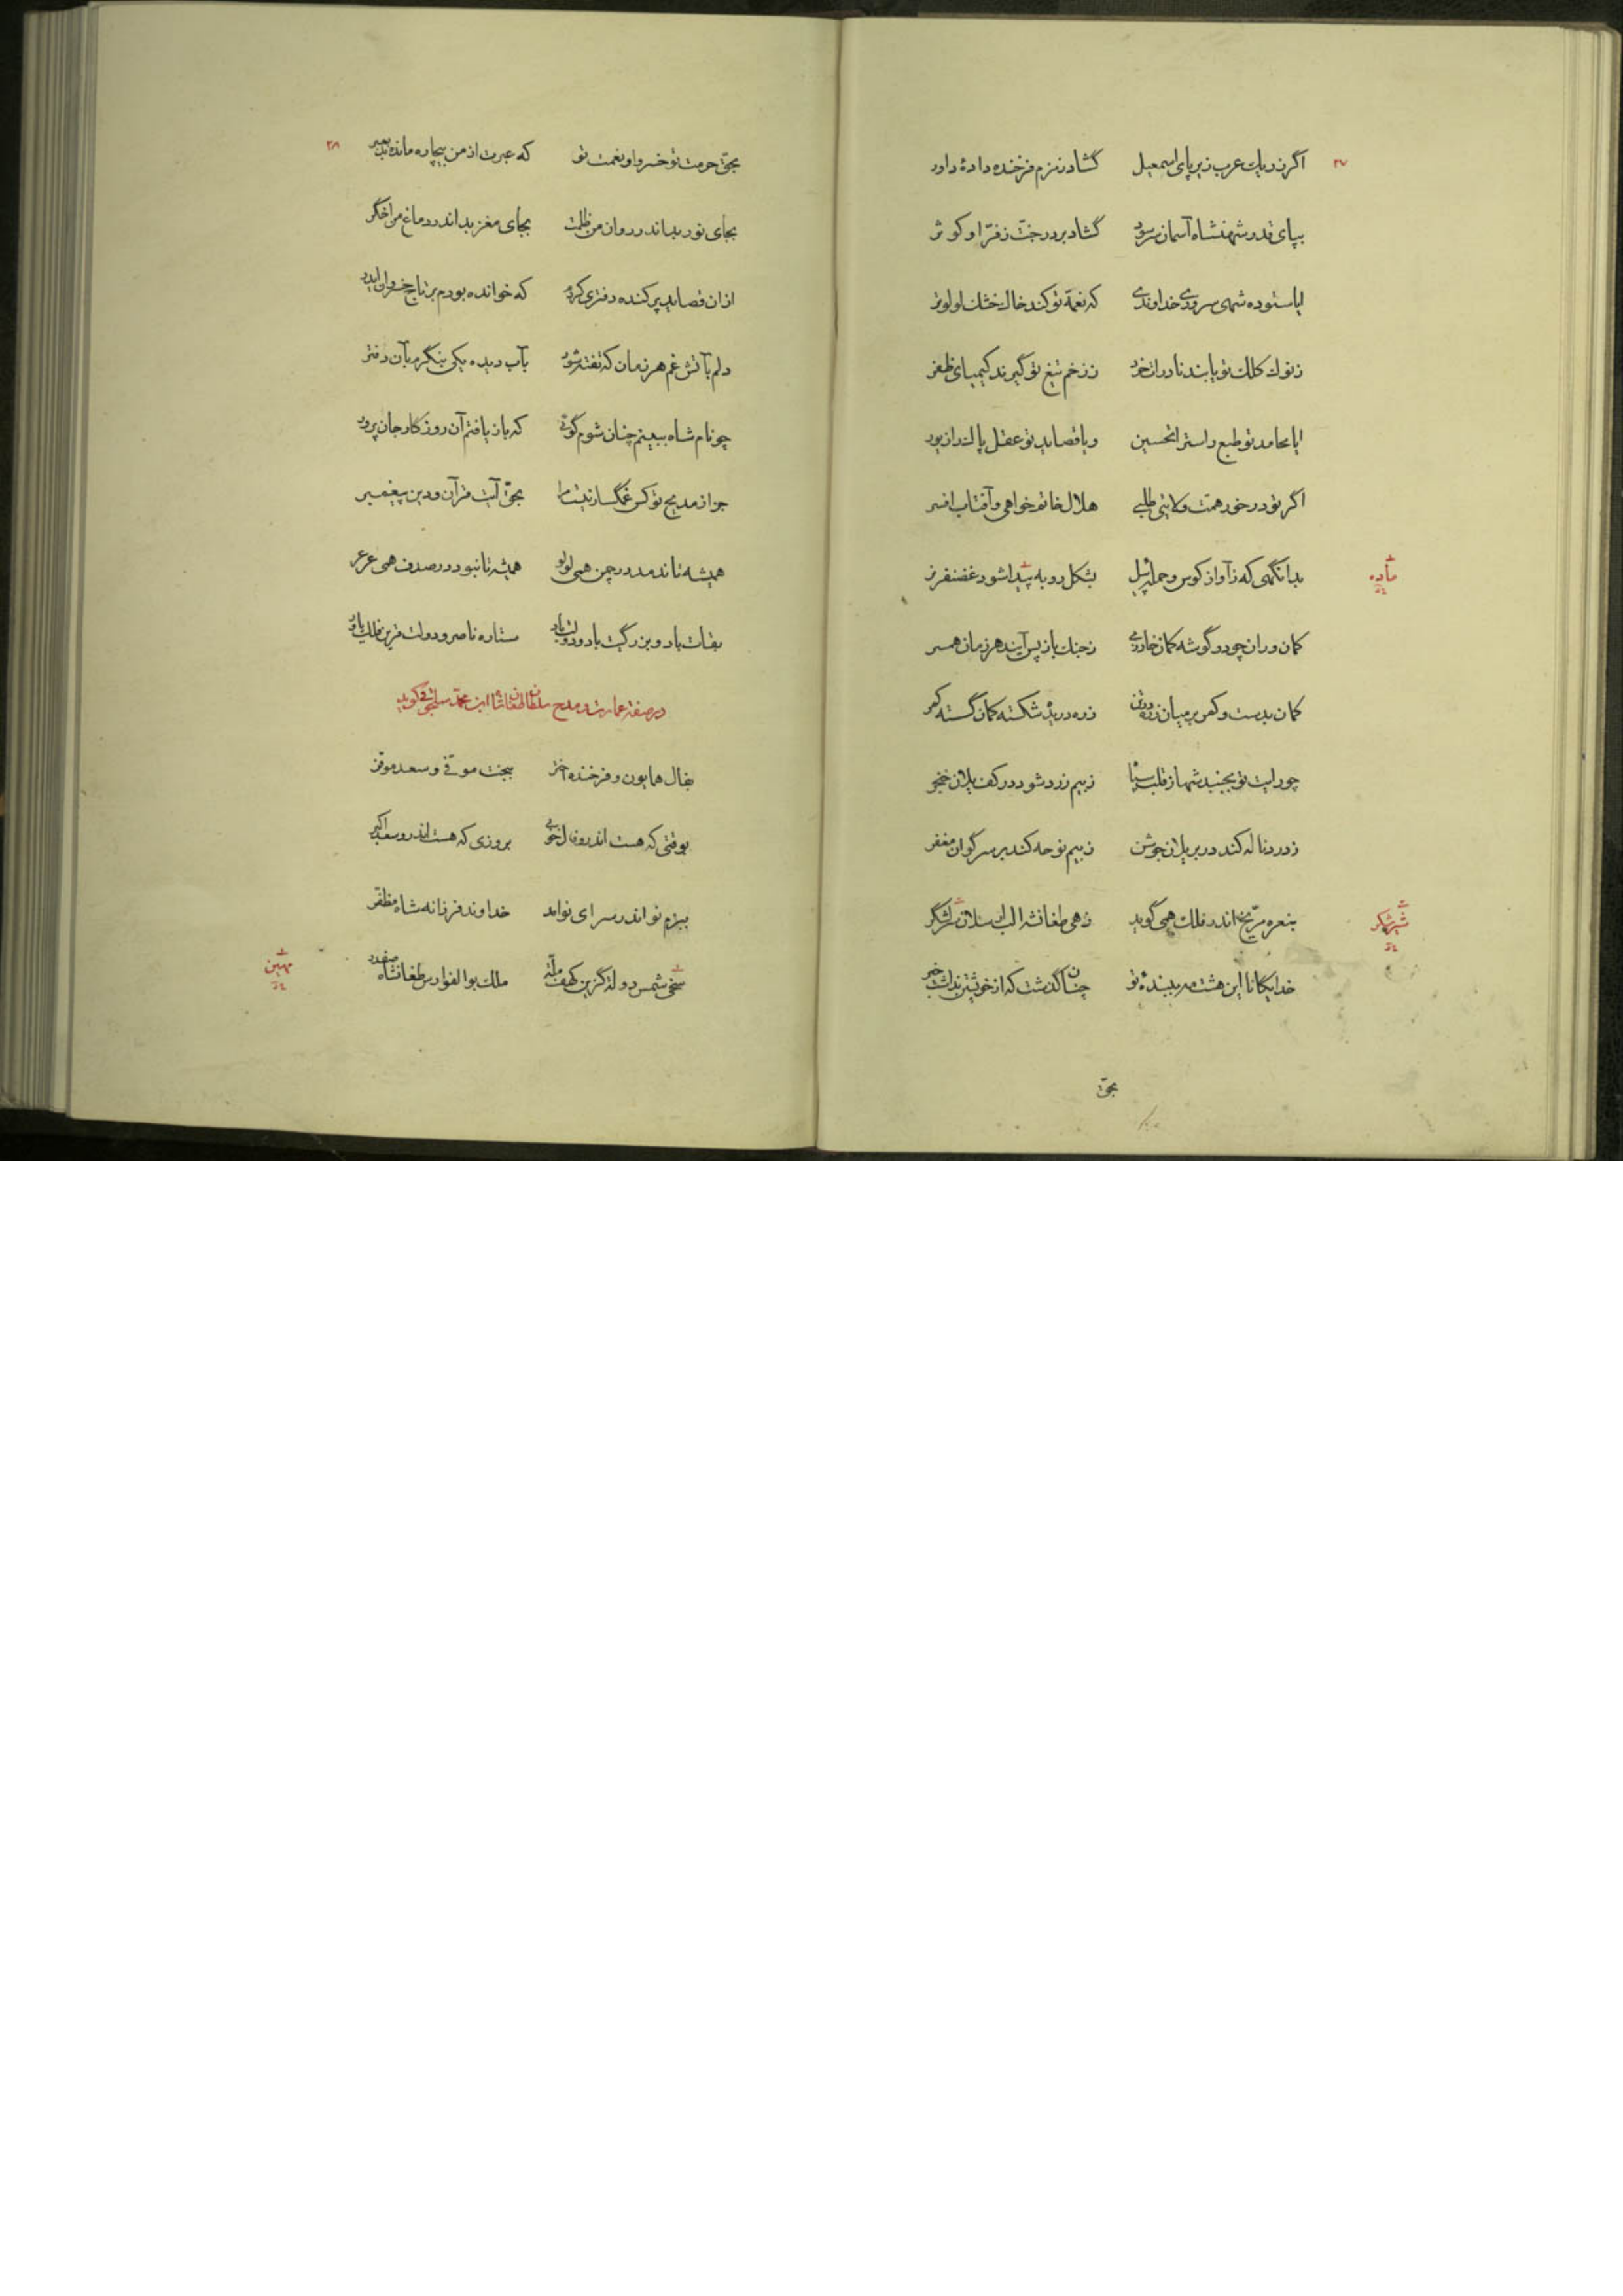 ۲۷
اگر ز ریك عرب زیر پای اسمعیل گشاد زمزم فرخنده دادهٔ داور
بپای قدر شهنشاه آسمان سریر گشاد بر در جنّت ز فرّ او کوثر
ایا ستوده شهی سروری خداوندی که نعمة تو کند خاك خشك لولوتر
ز نوك كلك تو یابند نادرات خرد ز زخم تیغ تو گیرند کیمیای ظفر
ایا محامد تو طبع راستر اتحسین و یا قصاید تو عقل پاك را زیور
اگر تو در خور همت ولایتی طلبی هلال خاتم خواهی و آفتاب افسر
بدانگهی که ز آواز کوس و حملهٔ پیل بشکل روبه پیدا شود غضنفر نر
ماده
کمان وران چو دو گوشه کمان خادرمی ز جنك باز پس آیند هر زمان همسر
کمان بدست و کمر بر میان زره در تن زره دریده شکسته کمان گسسته کمر
چو رایت تو بجنبد شها ز قلب سپاه ز بیم زرد شود در کف یلان خنجر
ز درد ناله کند در بر یلان جوشن ز بیم نوحه کند بر سر گوان مغفر
بنعره مرّیخ اندر فلك همی گوید زهی طغانشه الب ارسلان شیر شکر
شیر شکر
خدایگانا این هشت مه ببندهٔ تو چنان گذشت که از خویشتن نداشت خبر
بحقّ
۲۸
بحقّ حرمت تو خسروا و نعمت تو که عبرت از من بیچاره مانده بد بعبر
بجای نور بد اندر روان من ظلمت بجای مغز بد اندر دماغ من اخگر
از ان قصاید پرکنده دفتری کردم که خوانده بودم بر تاج خسروان ایدر
دلم بآتش غم هر زمان که تفته شود بآب دیده یکی بنگرم بآن دفتر
چو نام شاه ببینم چنان شوم گوئی که باز یافتم آن روزگار جان پرور
جز از مدیح تو کس غمگسار نیست مرا بحقّ آیت قرآن و دین پیغمبر
همیشه تا ندمد در چمن همی لولو همیشه تا نبود در صدف همی عرعر
بقات باد و بزرگیت باد و دولت باد ستاره ناصر و دولت قرین فلك یاور
در صفة عمارت و مدح سلطان طغانشاه ابن محمّد سلجوقی گوید
بفال همایون و فرخنده اختر ببخت موفّق و سعد موفّر
بوقتی که هست اندرو فال خوبی بروزی که هست اندرو سعد اکبر
ببزم نو اندر سرای نو آمد خداوند فرزانه شاه مظفّر
سخی شمس دولة گزین کهف ملّة ملك بوالفوارس طغانشاه صفدر
مهین